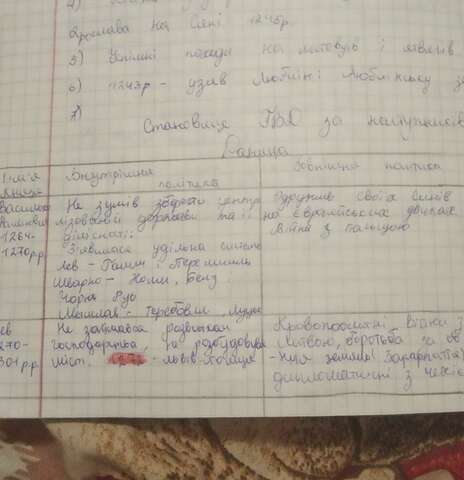 Ярослава на Сяні 1245р.
5) Успішні походи на литовців і ятвягів
6) 1243р - узяв Люблін і Люблінську з
7)
Становище ГВД за наступників
Данила
Ім'я князя
Внутрішня
політика
Зовнішня політика
Василько
1264-
1270р.р
Не зумів зберегти центра
лізованої держави та її
цілісності.
З'явилася удільна система
Лев - Галич і Перемишль
Шварно - Холм, Белз
Чорна Русь
Мстислав - Теребовля, Луцьк
Одружив своїх синів
на європейських дочках
Війни з Польщою
Лев
1270-
1301р.р.
Не займався розвитком
господарства, та розбудовував
міст. 1272 - Львів-столиця
Кровопролитні війни з
Литвою, боротьба за об
земель (Закарпаття)
дипломатичні з Чехіє